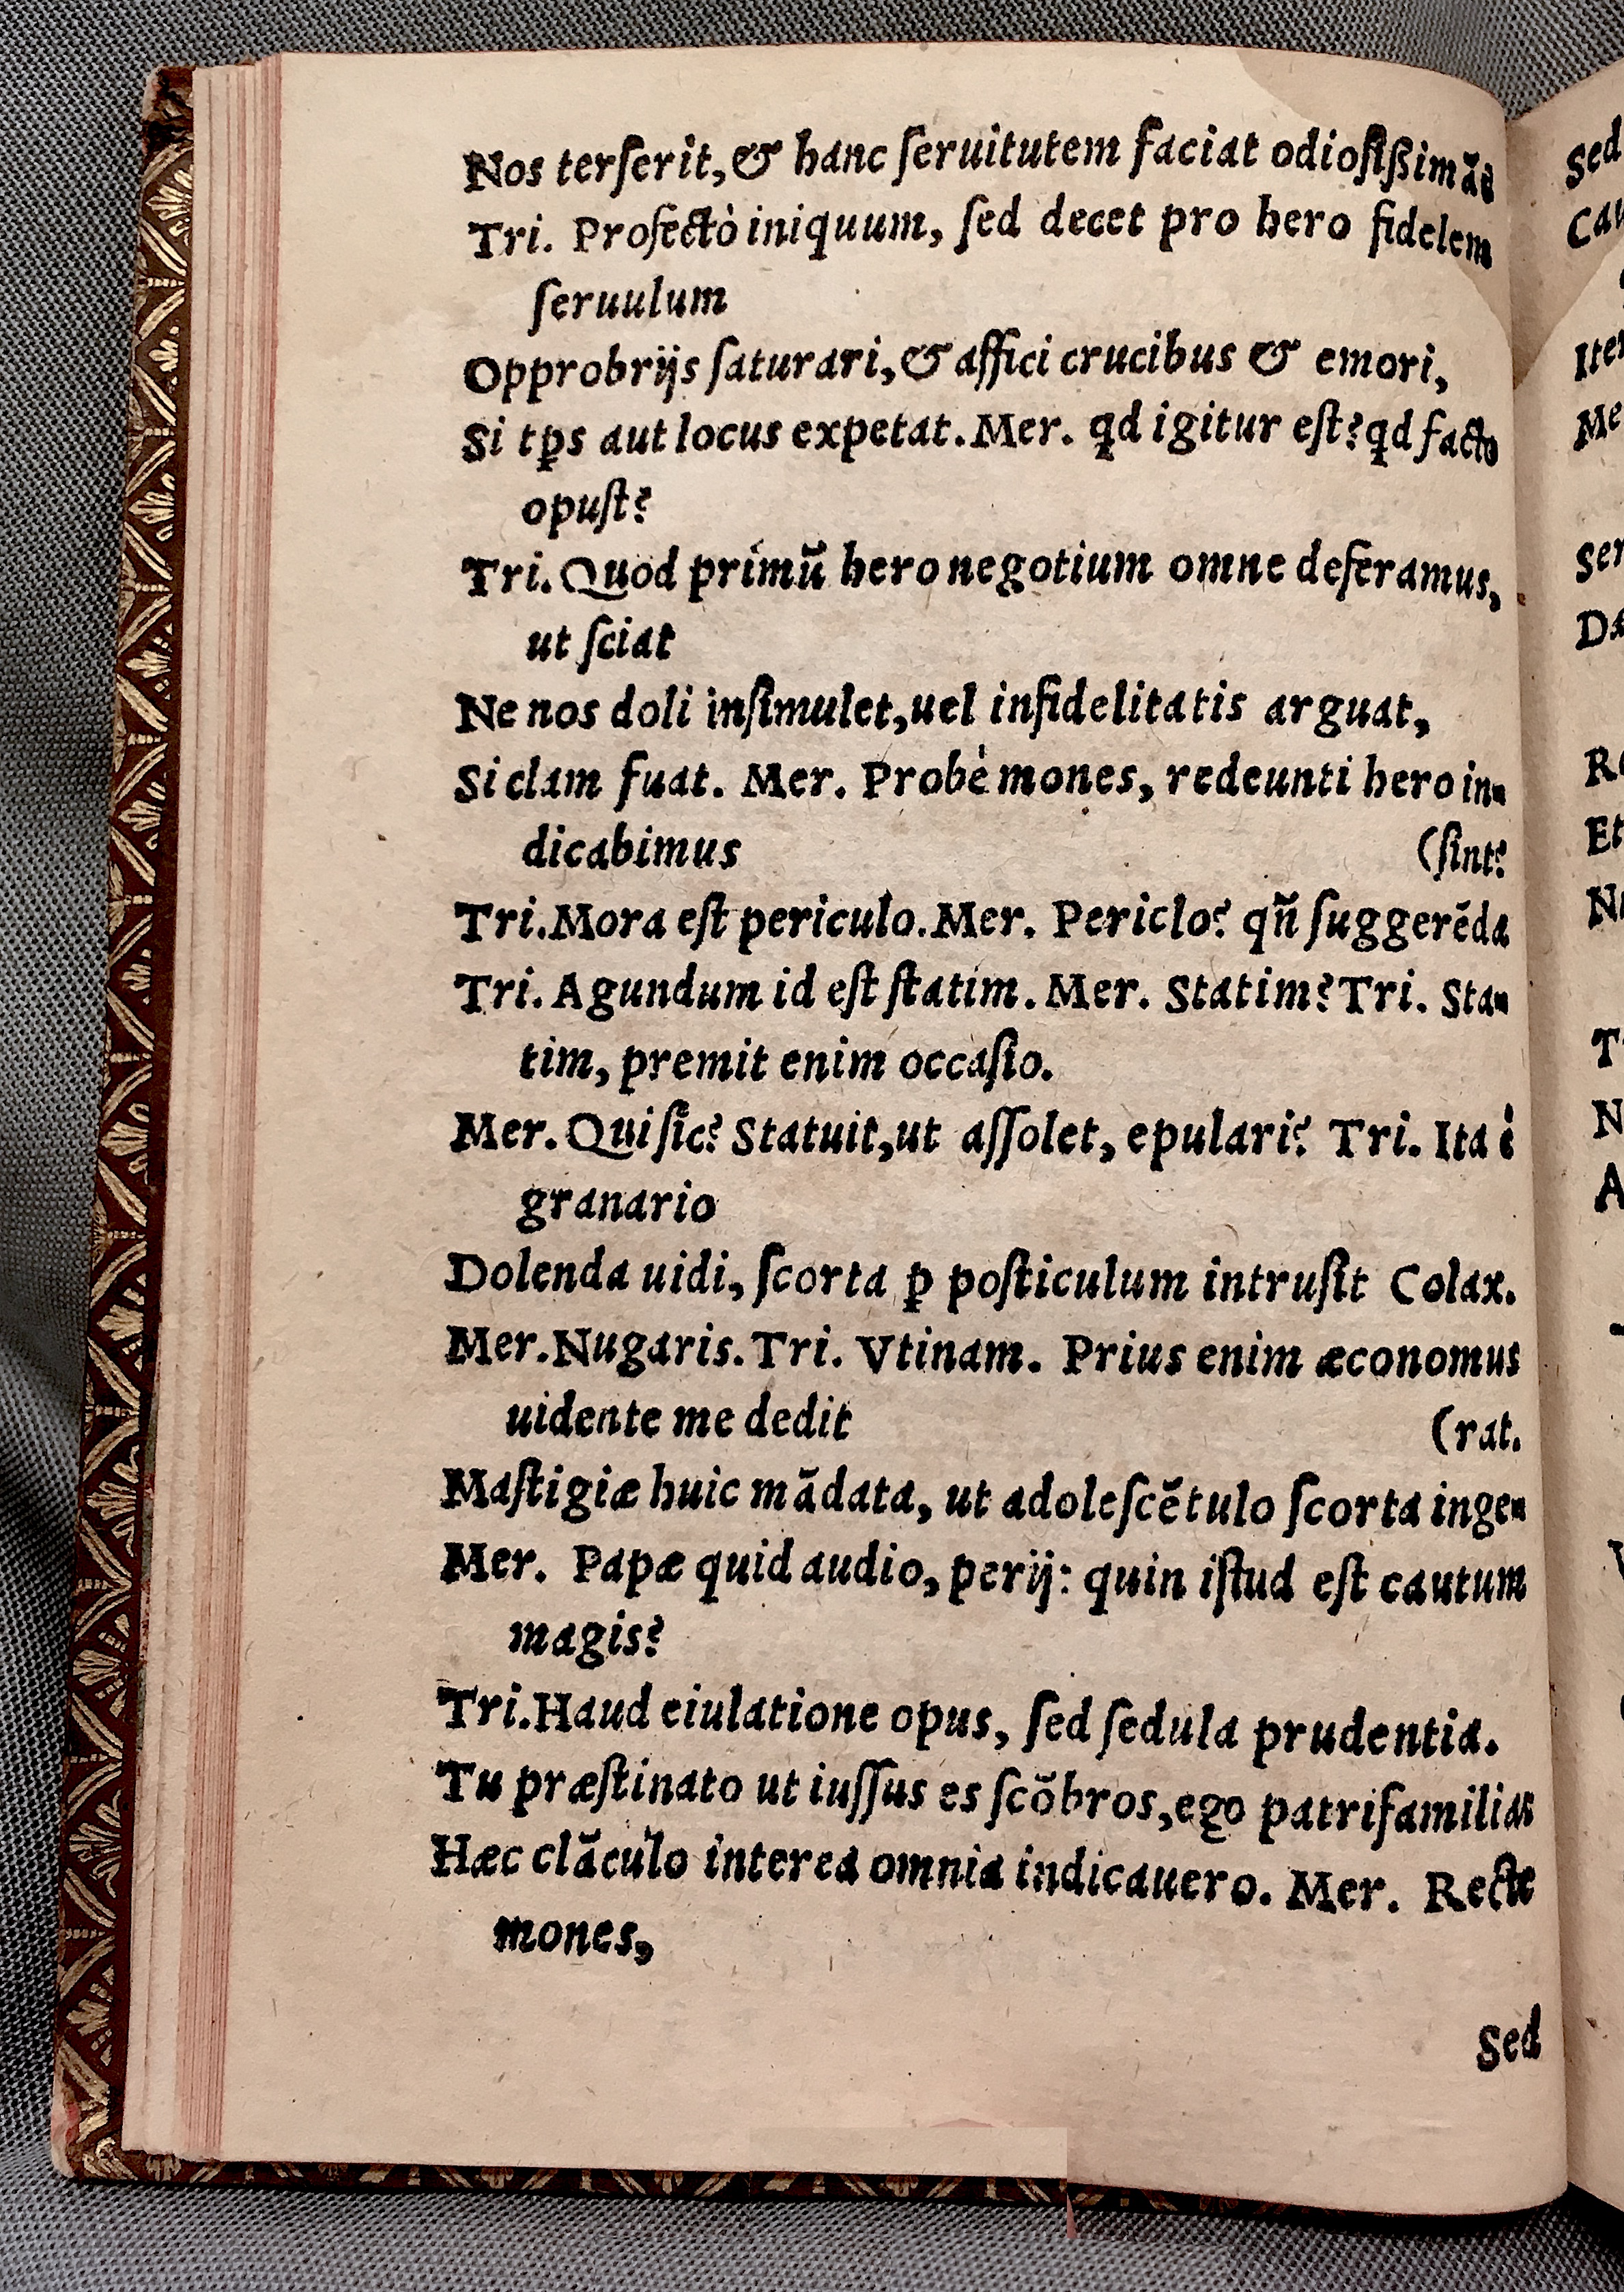 Nos terſerit, & hanc ſeruitutem faciat odioſiſsimā
Tri. Profectò iniquum, ſed decet pro hero fidelem
ſeruulum
Opprobrijs ſaturari, & affici crucibus & emori,
Si tp̱s aut locus expetat. Mer. qd igitur eſt? qd facto
opuſt?
Tri. Quod primū hero negotium omne deferamus,
ut ſciat
Ne nos doli inſimulet, uel infidelitatis arguat,
Si clam fuat. Mer. Probè mones, redeunti hero in-
dicabimus (ſint?
Tri. Mora eſt periculo. Mer. Periclo? qñ ſuggerēda
Tri. Agundum id eſt ſtatim. Mer. Statim? Tri. Sta-
tim, premit enim occaſio.
Mer. Qui ſic? Statuit, ut aſſolet, epulari? Tri. Ita è
granario
Dolenda uidi, ſcorta ꝑ poſticulum intruſit Colax.
Mer. Nugaris. Tri. Vtinam. Prius enim æconomus
uidente me dedit (rat.
Maſtigiæ huic mādata, ut adoleſcētulo ſcorta inge-
Mer. Papæ quid audio, perij: quin iſtud eſt cautum
magis?
Tri. Haud eiulatione opus, ſed ſedula prudentia.
Tu præſtinato ut iuſſus es ſcōbros, ego patrifamilias
Hæc clāculo interea omnia indicauero. Mer. Recte
mones,
Sed
Sed
Ser